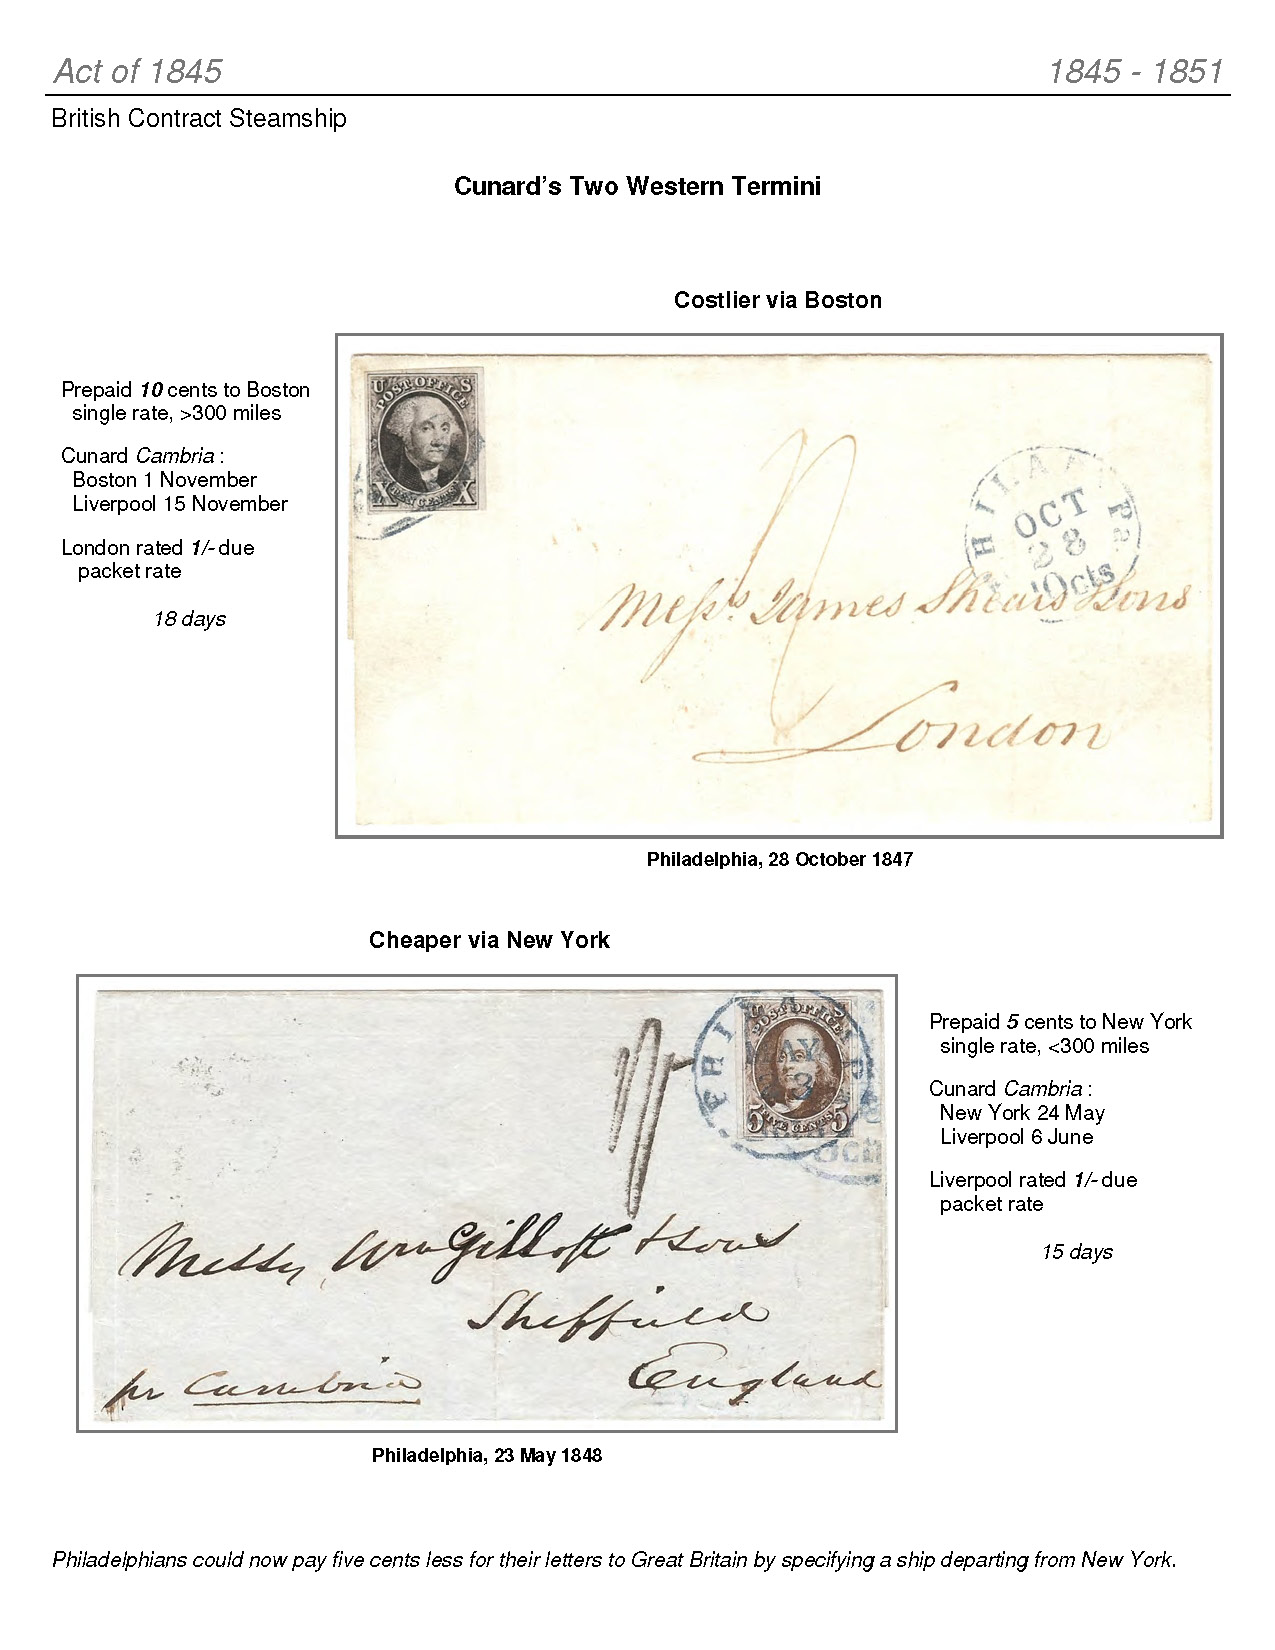 Act of 1845
1845 - 1851
British Contract Steamship
Cunard's Two Western Termini
Costlier via Boston
Prepaid 10 cents to Boston
single rate, >300 miles
Cunard Cambria :
Boston 1 November
Liverpool 15 November
London rated 1/- due
packet rate
18 days
U S
POST OFFICE
X TEN CENTS X
PHILADA Pa.
OCT
28
10cts
Messrs. James Shears & Sons
London
Philadelphia, 28 October 1847
Cheaper via New York
POST OFFICE
5 FIVE CENTS 5
MAY
23
Messrs Wm Gillott & Sons
Sheffield
England
pr Cambria
Prepaid 5 cents to New York
single rate, <300 miles
Cunard Cambria :
New York 24 May
Liverpool 6 June
Liverpool rated 1/- due
packet rate
15 days
Philadelphia, 23 May 1848
Philadelphians could now pay five cents less for their letters to Great Britain by specifying a ship departing from New York.